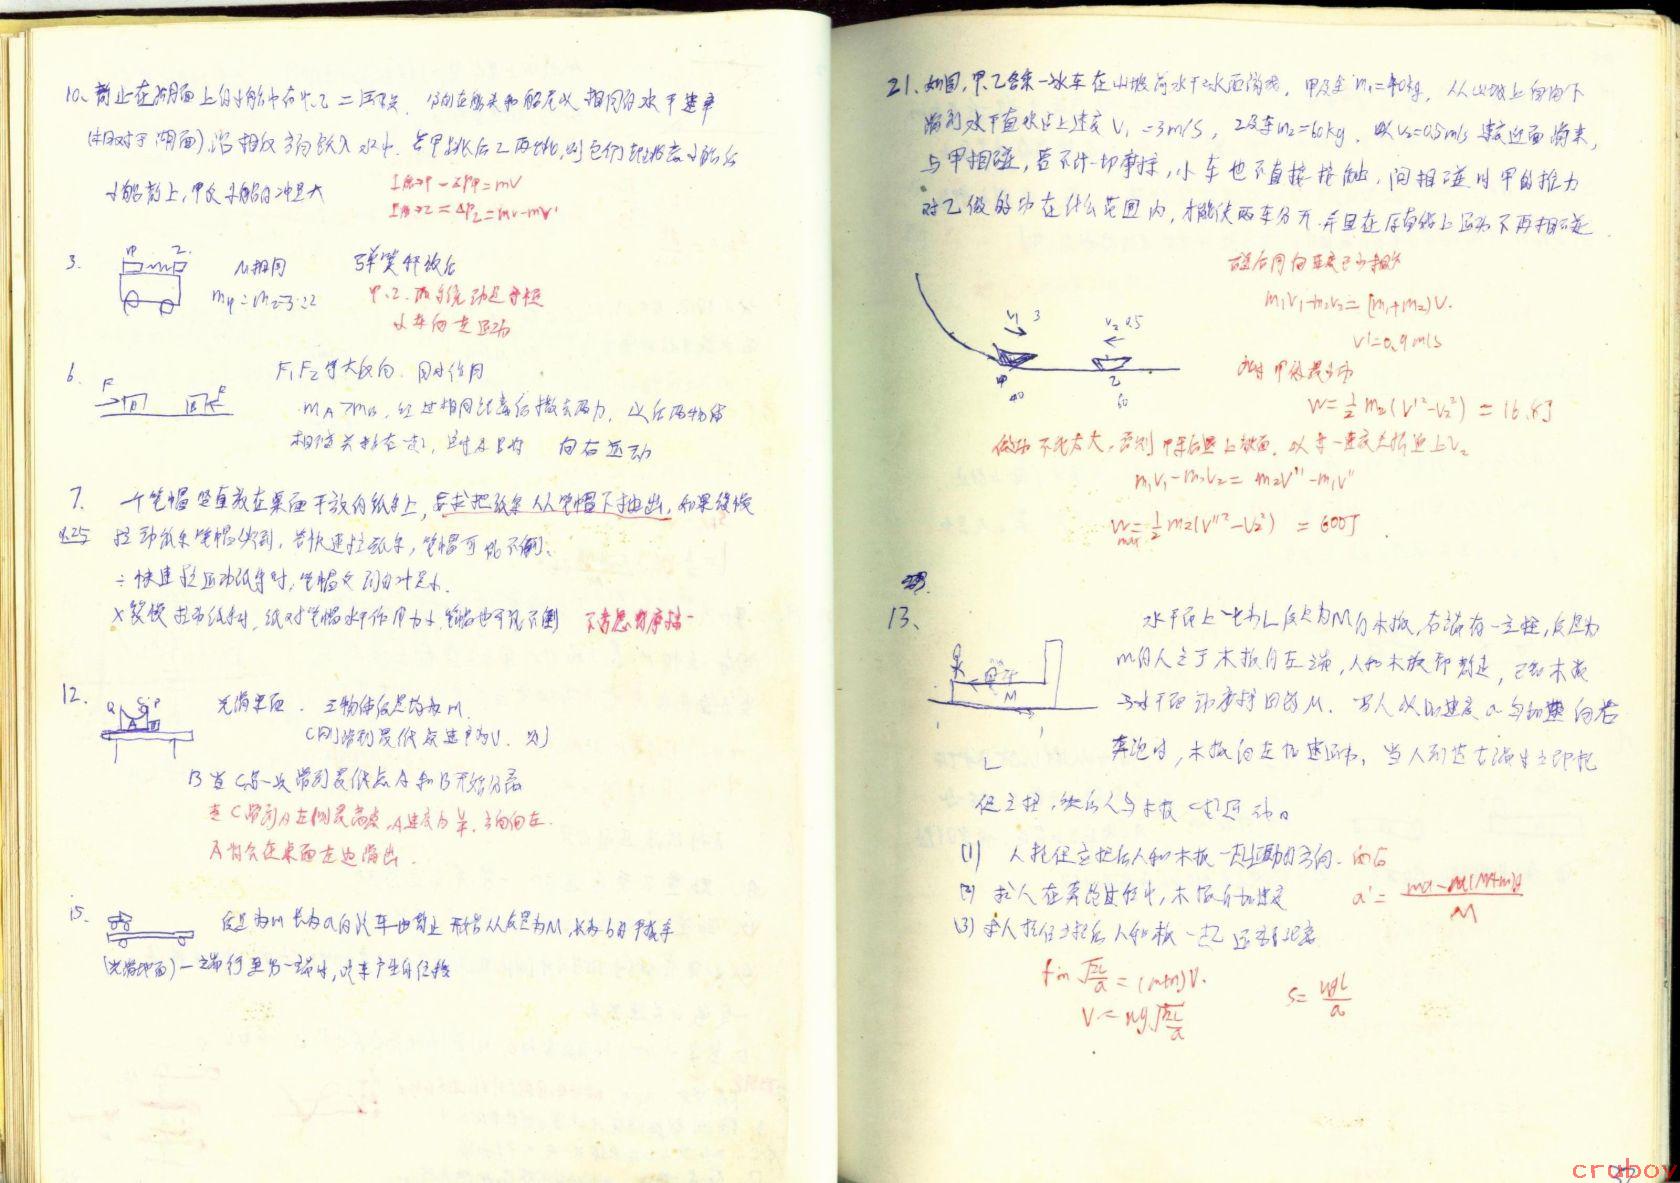 10、静止在湖面上的小船中有甲、乙二人，分别在船头和船尾以相同的水平速率
(相对于湖面)沿相反方向跃入水中。若甲先跳后乙再跳，则它们都跳离小船后
小船静止，甲受小船的冲量大
I船→甲 = ΔP甲 = mV
I船→乙 = ΔP乙 = mv-mv'
3.
甲 乙
M相同
m甲:m乙=3:2
弹簧释放后
甲、乙、系统动量守恒
小车向左运动
6.
F F
F₁F₂等大反向、同时作用
mA>mB，经过相同距离后撤去两力，以后两物体
相碰并粘在一起，这时A、B将 向右运动
7. 一个笔帽竖直放在桌面平放的纸条上，要求把纸条从笔帽下抽出，如果缓慢
拉动纸条笔帽倒，若快速拉纸条，笔帽可能不倒。
∴快速拉动纸条时，笔帽受到的冲量小.
×缓慢拉动纸条时，纸对笔帽水平作用力小，笔帽也可能不倒
12.
Q C P
A B
光滑桌面．三物体质量均为M.
C刚滑到最低点速率为V．则
B当C第一次滑到最低点A和B开始分离
A将会在桌面左边滑出．
15. 质量为m长为a的小车由静止开始从质量为M，长为b的平板车
(光滑地面)一端行至另一端时，平板车产生的位移
21、如图，甲、乙各乘一冰车在山坡前水平冰面游戏．甲及车m₁=40kg，从山坡上自由下
滑到水平直冰道上速度V₁=3m/s，乙及车m₂=60kg．以V₂=0.5m/s速度迎面滑来，
与甲相碰，若不计一切摩擦，小车也不直接接触，问相碰时甲的推力
对乙做的功在什么范围内，才能使两车分开．并且在原直线上运动不再相碰
V₁ 3
V₂ 0.5
甲
40
乙
60
碰后同向速度至少相等
m₁V₁-m₂V₂=(m₁+m₂)V.
V'=0.9m/s
此时甲做最少功
W=½m₂(V'²-V₂²)=16.8J
做功不能太大，否则甲车后退上坡面，以某一速度又折追上V₂
m₁V₁-m₂V₂=m₂V''-m₁V''
Wmax=½m₂(V''²-V₂²) =600J
13、
M
L
水平面上一长为L质量为M的木板，右端有一立柱，质量为
m的人立于木板的左端，人和木板都静止，已知木板
与水平面动摩擦因数μ．当人以加速度a匀加速向右
奔跑时，木板向左加速运动，当人到达右端时立即抱
住立柱，然后人与木板一起运动。
(1) 人抱住立柱后人和木板一起运动的方向．向右
(2) 求人在奔跑过程中，木板的加速度 a'= (ma-μ(M+m)g)/M
(3) 求人抱住立柱后人和板一起运动的距离
√(2L/a) = (m+M)V.
V=μg√(2L/a)
S=μgL/a
cruboy